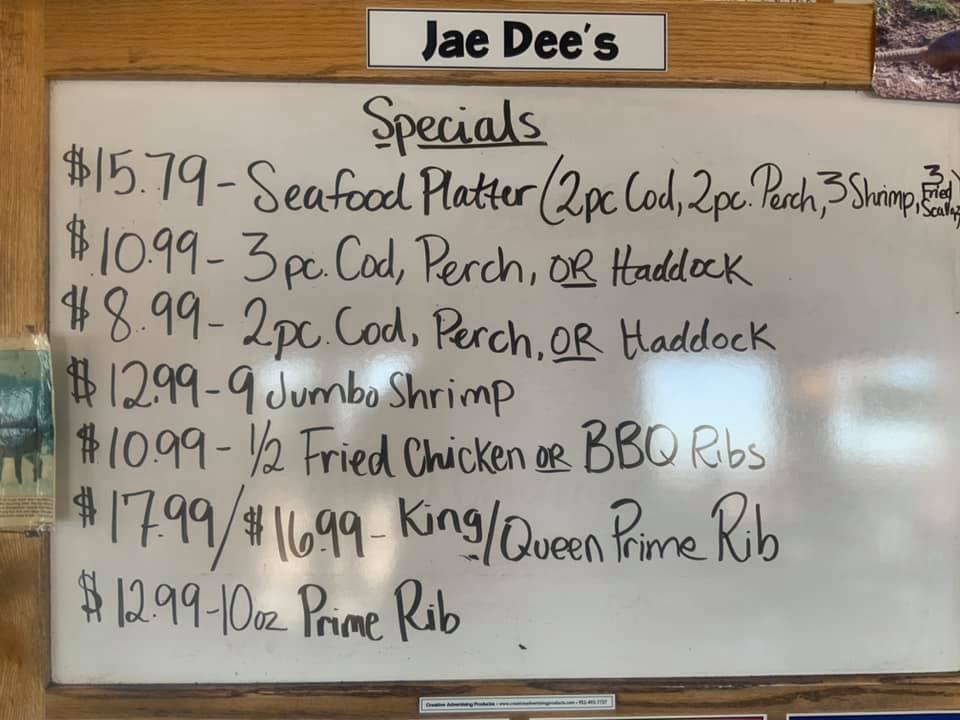 Jae Dee's
Specials
$15.79 - Seafood Platter (2pc Cod, 2pc. Perch, 3 Shrimp, 3 Fried
$10.99 - 3 pc. Cod, Perch, OR Haddock
$8.99 - 2pc. Cod, Perch, OR Haddock
$12.99 - 9 Jumbo Shrimp
$10.99 - 1/2 Fried Chicken OR BBQ Ribs
$17.99/$16.99 - King/Queen Prime Rib
$12.99 - 10oz Prime Rib
Creative Advertising Products